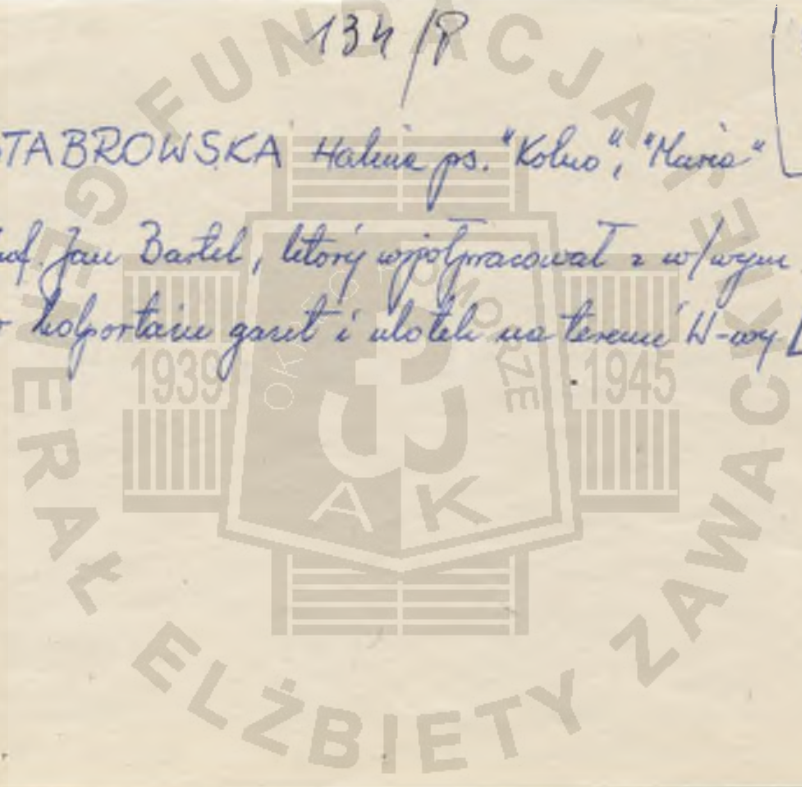 134/P
STABROWSKA Halina ps. "Kolno", "Maria"
Prof. Jan Bartel, który współpracował z w/wym
kolportażu gazet i ulotek na terenie W-wy
FUNDACJA GENERAŁ ELŻBIETY ZAWACKIEJ
OKRĘG POMORZE
1939 1945
AK